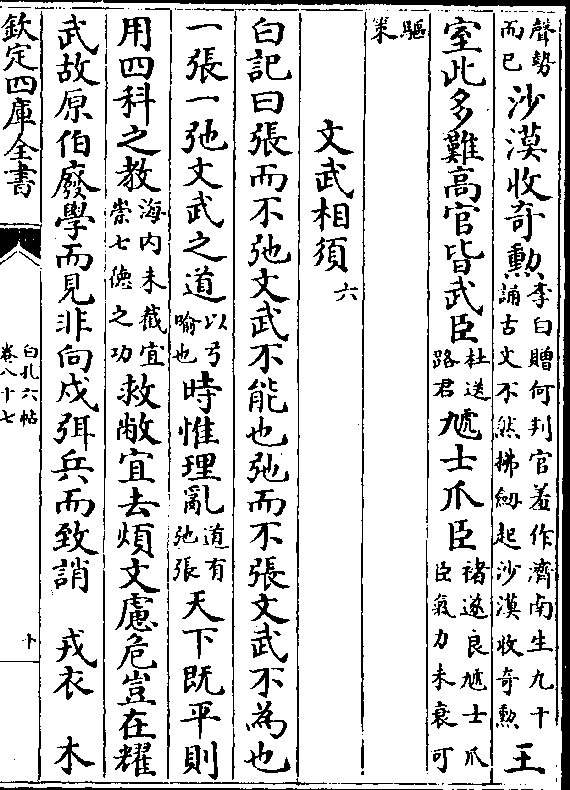 聲勢而已沙漠收奇勲李白贈何判官羞作濟南生九十誦古文不然拂劒起沙漠收奇勲王
室此多難高官皆武臣杜送路君虓士爪臣褚遂良虓士爪臣氣力未衰可
驅策
文武相須六
白記曰張而不弛文武不能也弛而不張文武不為也
一張一弛文武之道以弓喻也時惟理亂道有弛張天下既平則
用四科之教海内未截宜崇七德之功救敝宜去煩文慮危豈在耀
武故原伯廢學而見非向戌弭兵而致誚 戎衣 木
欽定四庫全書
白孔六帖
卷八十七